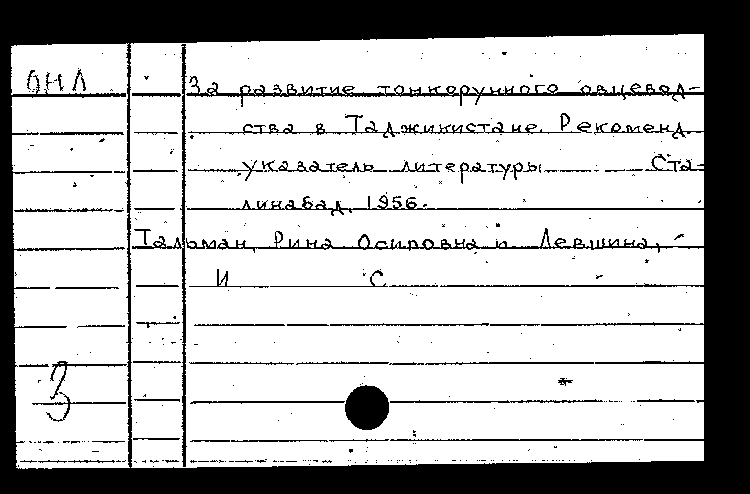 ОНЛ
За развитие тонкорунного овцевод-
ства в Таджикистане. Рекоменд.
указатель литературы. Ста-
линабад, 1956.
Тальман, Рина Осиповна и Левшина,
И С
З